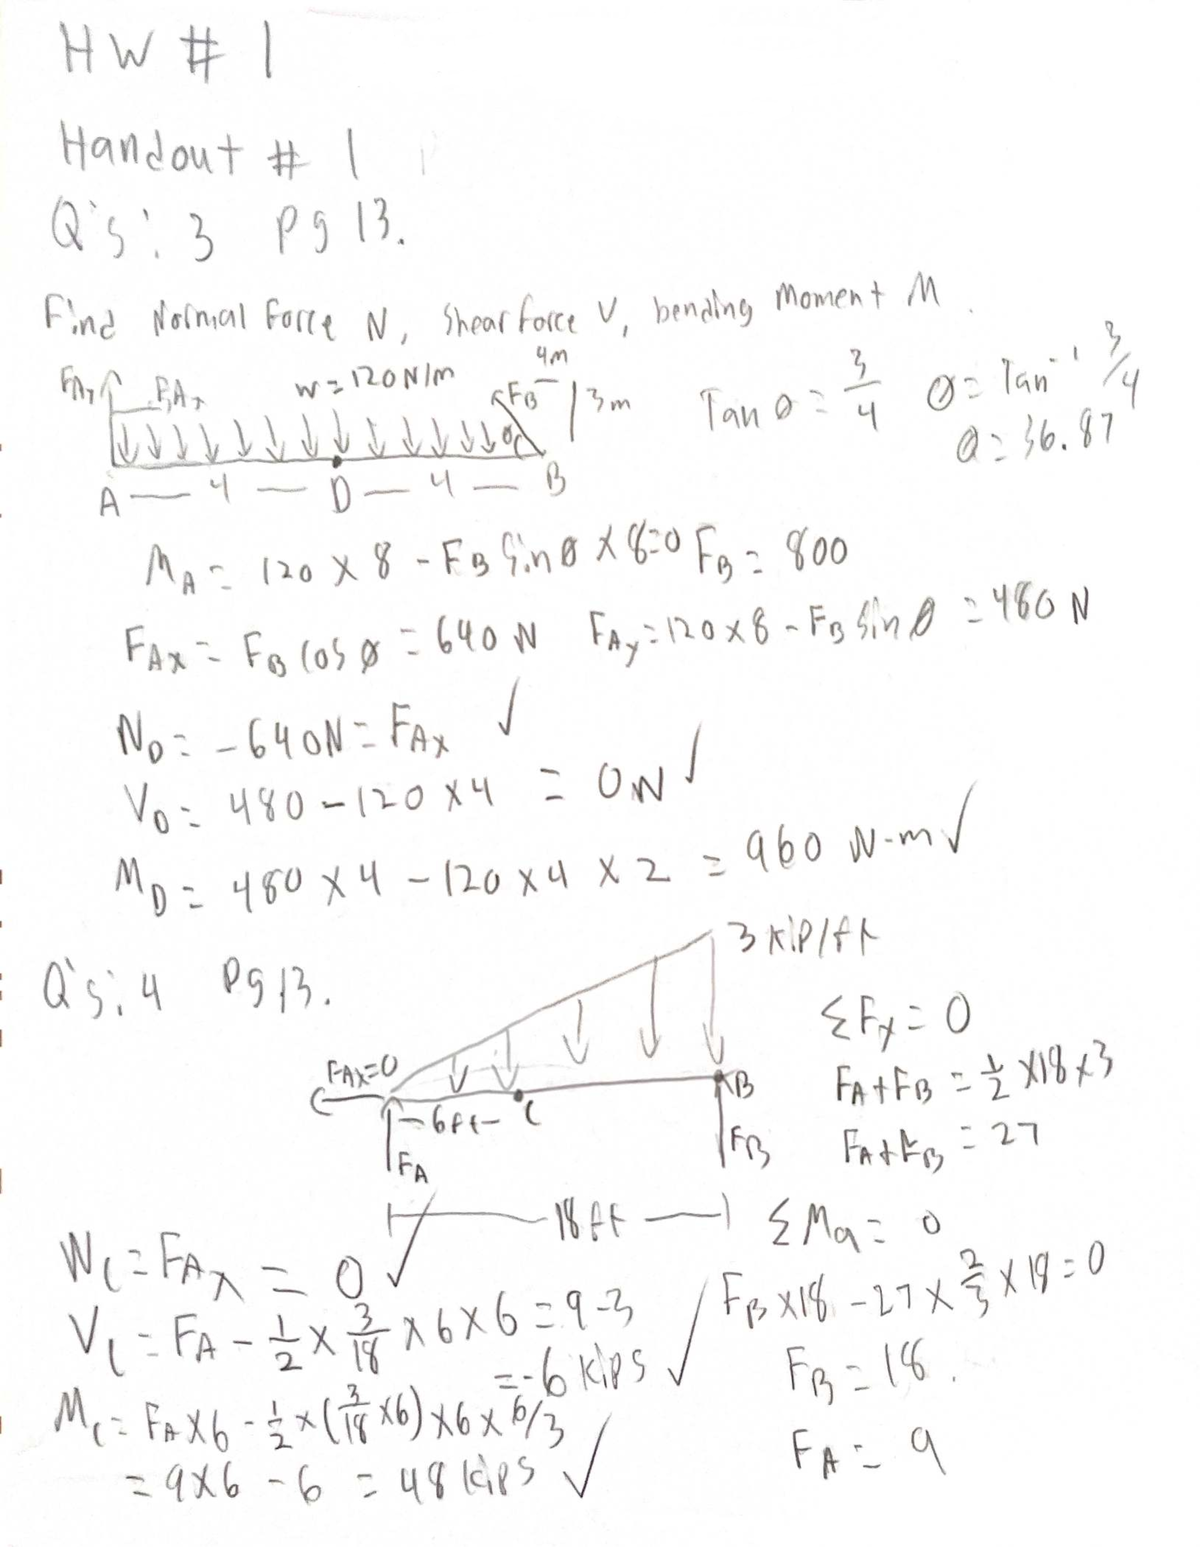 HW # 1
Handout # 1
Q's: 3 Pg 13.
Find Normal Force N, Shear force V, bending Moment M.
FAy FAx w = 120 N/m FB 4m 3m Tan θ = 3/4 θ = Tan⁻¹ 3/4
θ = 36.87
A — 4 — D — 4 — B
MA = 120 × 8 - FB Sin θ × 8 = 0 FB = 800
FAx = FB Cos θ = 640 N FAy = 120 × 8 - FB Sin θ = 480 N
ND = -640N = FAx ✓
VD = 480 - 120 × 4 = 0N ✓
MD = 480 × 4 - 120 × 4 × 2 = 960 N-m ✓
Q's: 4 Pg 13.
3 kip/ft
FAx=0
6ft
C
B
FA
FB
18 ft
ΣFy = 0
FA+FB = 1/2 × 18 × 3
FA+FB = 27
ΣMa = 0
FB × 18 - 27 × 2/3 × 18 = 0
FB = 18.
FA = 9
NC = FAx = 0 ✓
VC = FA - 1/2 × 3/18 × 6 × 6 = 9-3
= -6 kips ✓
MC = FA × 6 - 1/2 × (3/18 × 6) × 6 × 6/3
= 9 × 6 - 6 = 48 kips ✓